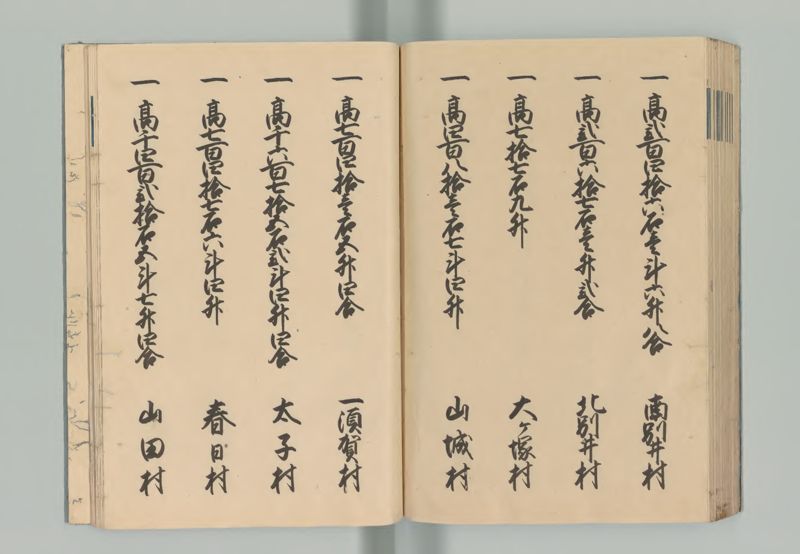 一 高弐百四拾六石壱斗六升八合 南別井村
一 高弐百六拾七石壱升弐合 北別井村
一 高七拾七石九升 大ヶ塚村
一 高四百八拾壱石七斗四升 山城村
一 高七百四拾壱石五升四合 一須賀村
一 高千六百七拾五石弐斗四升四合 太子村
一 高七百四拾七石六斗四升 春日村
一 高千四百弐拾石五斗七升四合 山田村